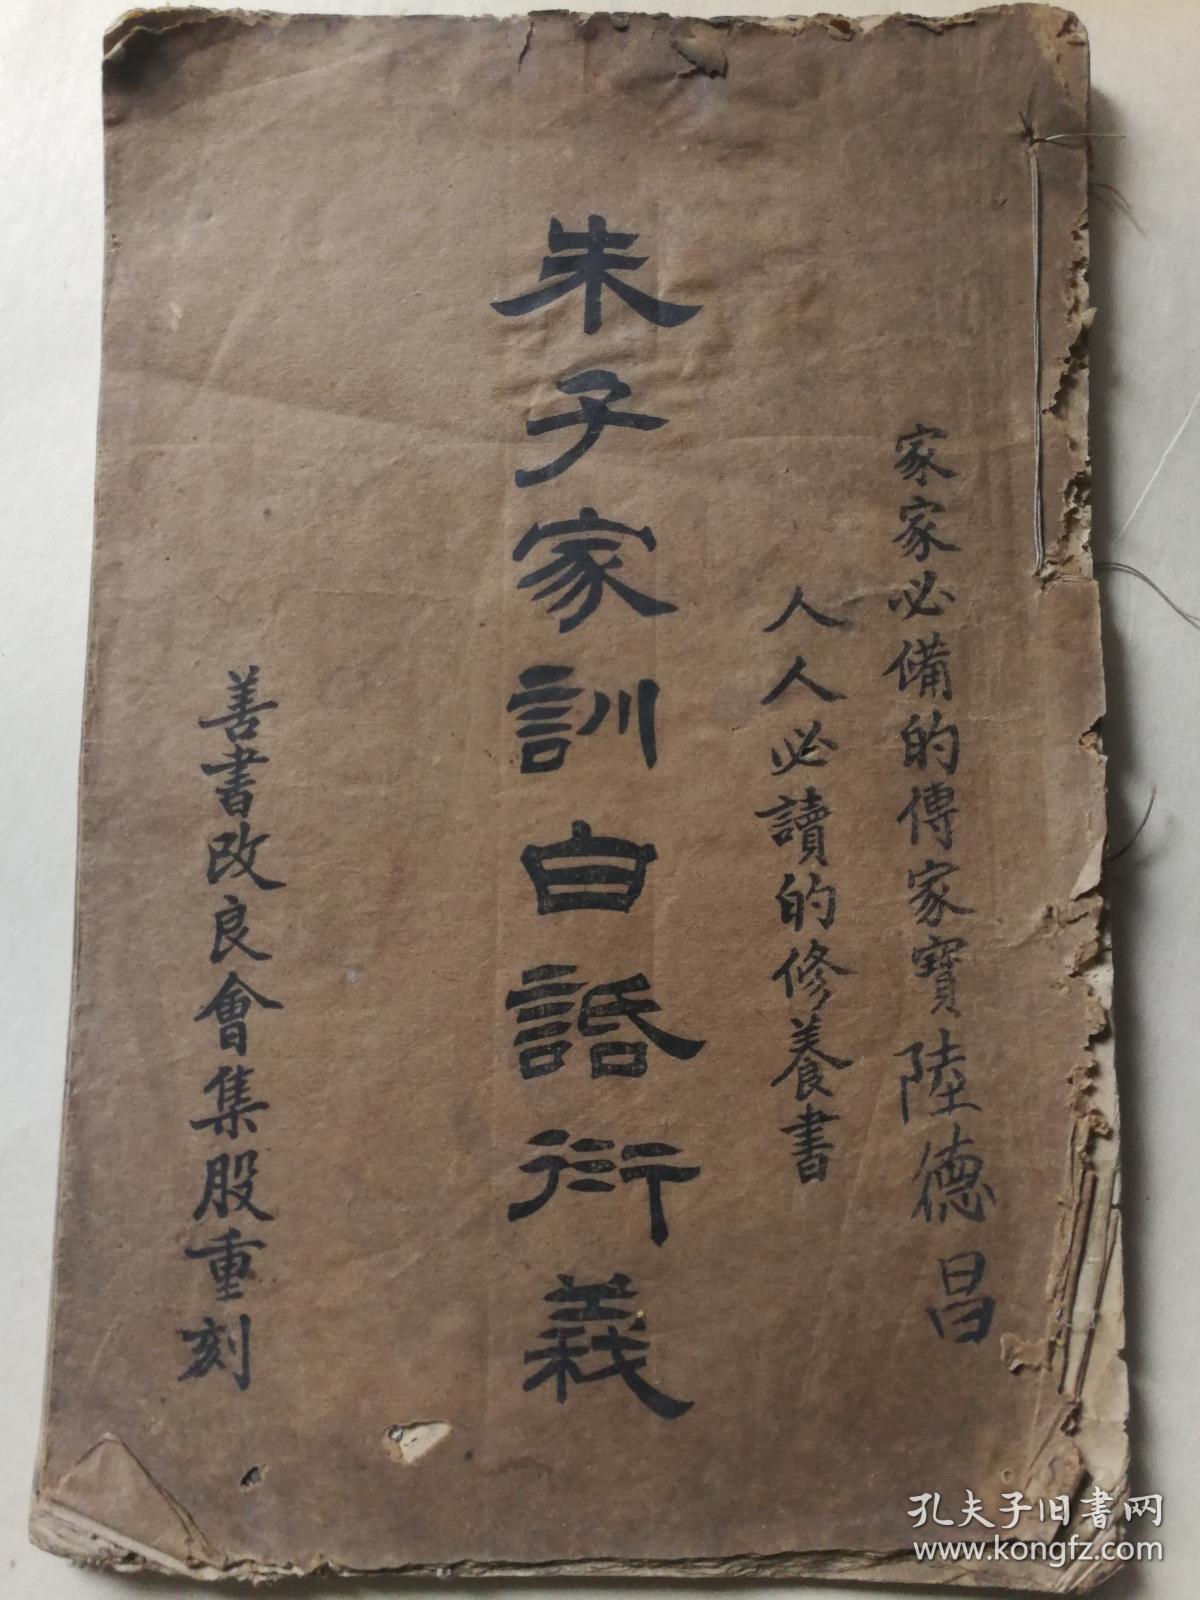 家家必備的傳家寶陸德昌
人人必讀的修養書
朱子家訓白話衍義
善書改良會集股重刻
孔夫子旧书网
www.kongfz.com